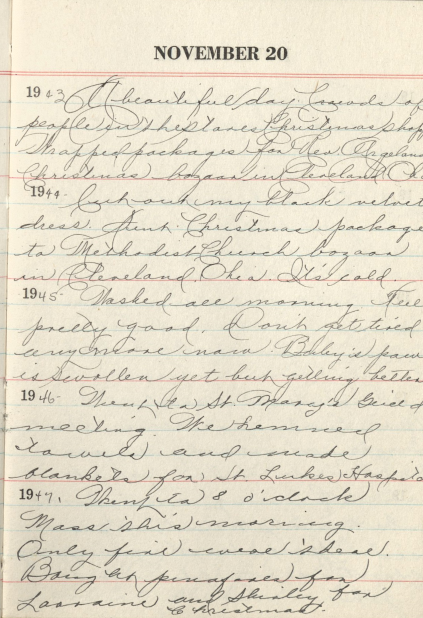 NOVEMBER 20
1943 A beautiful day. Crowds of
people in the stores Christmas shop
Wrapped packages for New
Christmas bozaar in Cleveland
1944- Cut out my black velvet
dress. Sent Christmas package
to Methodist Church bozaar
in Cleveland, Ohio. It's cold.
1945- Washed all morning. Feel
pretty good. Don't get tired
any more now. Baby's paw
is swollen yet but getting better
1946- Went to St. Mary's Guild
meeting. We hemmed
towels and made
blankets for St Lukes Hospita
1947. Went to 8 o'clock
Mass this morning.
Only five were there.
Bought pinafores for
Lorraine and Shirley for
Christmas.